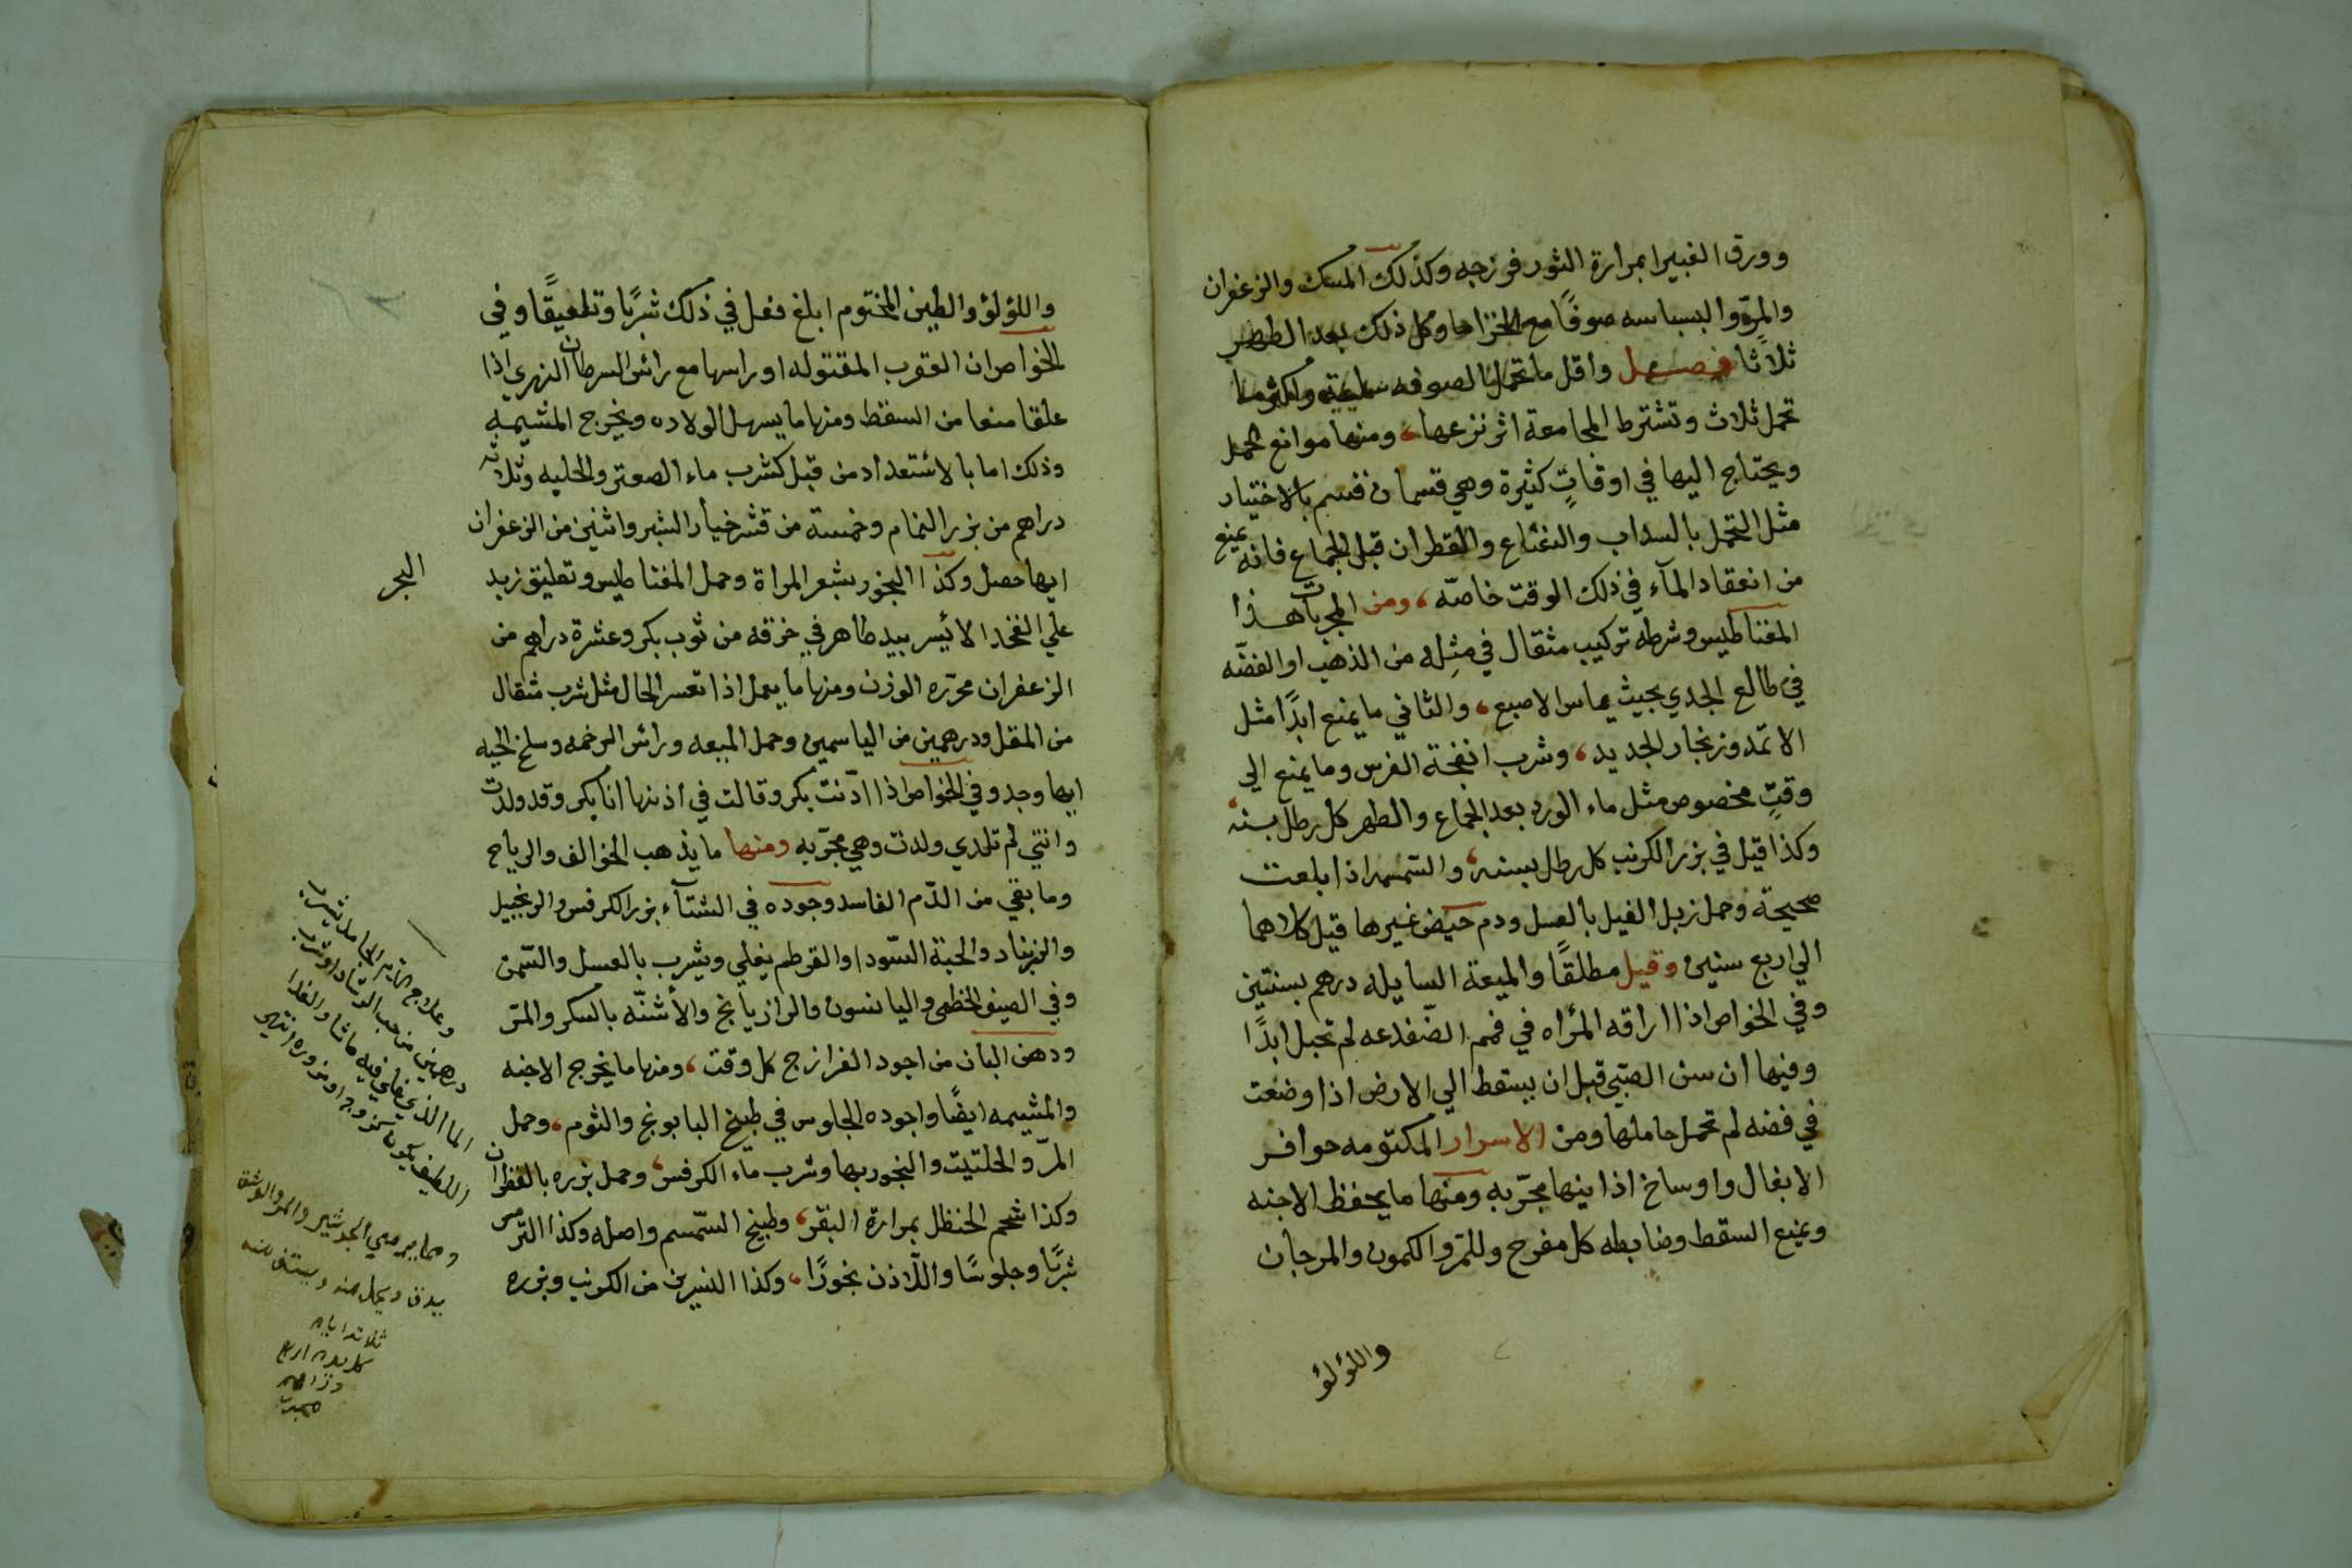 وورق الغبيرا بمرارة الثور فرزجه وكذلك المسك والزعفران
والمرّ والبسباسه صوفًا مع الخزاما وكل ذلك بعد الطهر
ثلاثًا فصل واقل ما تحمل الصوفه واكثر ما
تحمل ثلاث وتشترط المجامعة اثر نزعها، ومنها موانع الحمل
ويحتاج اليها في اوقاتٍ كثيرة وهي قسمان قسم بالاختيار
مثل التحمل بالسداب والنعناع والقطران قبل الجماع فانه يمنع
من انعقاد المآء في ذلك الوقت خاصّه، ومن المجربات هذا
المغناطيس وشرطه تركيب مثقال في مثله من الذهب او الفضّه
في طالع الجدي بحيث يماس الاصبع، والثاني ما يمنع ابدًا مثل
الاثمد وزنجار الحديد، وشرب انفحة الفرس وما يمنع الي
وقتٍ مخصوص مثل ماء الورد بعد الجماع والطهر كل رطل بسنه
وكذا قيل في بزر الكرنب كل رطل بسنه، والسّمسم اذا بلعت
صحيحة وحمل زبل الفيل بالعسل ودم حيض غيرها قيل كلاهما
الي اربع سنين وقيل مطلقًا والميعة السايله درهم بسنتين
وفي الخواص اذا اراقه المرٔاه في فم الضّفدعه لم تحبل ابدًا
وفيها ان سن الصّبيّ قبل ان يسقط الي الارض اذا وضعت
في فضه لم تحمل حاملها ومن الاسرار المكتومه حوافر
الابغال واوساخ اذانيها مجرّبه ومنها ما يحفظ الاجنه
ويمنع السقط وضابطه كل مفرح وللمرّ والكمون والمرجان
واللؤلؤ
واللؤلؤ والطين المختوم ابلغ فعل في ذلك شربًا وتعليقًا وفي
الخواص ان العقرب المقتوله او راسها مع راس السرطان النهري اذا
علقا منعا من السقط ومنها ما يسهل الولاده ويخرج المشيمه
وذلك اما بالاستعداد من قبل كشرب ماء الصعتر والحلبه وثلاثه
دراهم من بزر النمام وخمسة من قشر خيار الشبر واثنين من الزعفران
ايها حصل وكذا البخور بشعر المراة وحمل المغناطيس وتعليق زبد
البحر
علي الفخد الايسر بيد طاهر في خرقه من ثوب بكر وعشرة دراهم من
الزعفران محرّره الوزن ومنها ما يعمل اذا تعسر الحال مثل شرب مثقال
من المقل ودرهمين من الياسمين وحمل الميعه وراس الرخمه وسلخ الحيه
ايها وجد وفي الخواص اذا ادّنت بكر وقالت في اذنها انا بكر وقد ولدت
وانتي لم تلدي ولدت وهي مجرّبه ومنها ما يذهب الخوالف والرياح
وما بقي من الدّم الفاسد وجوده في الشتآء بزر الكرفس والزنجبيل
والزرنباد والحبة السّودا والقرطم يغلي ويشرب بالعسل والسّمن
وفي الصيف الخطمي واليانسون والرازيانج والأشنّه بالسكر والمرّ
ودهن البان من اجود الفرازج كل وقت، ومنها ما يخرج الاجنه
والمشيمه ايضًا واجوده الجلوس في طبيخ البابونج والثوم، وحمل
المرّ والحلتيت والبخور بها وشرب ماء الكرفس، وحمل بزره بالقطران
وكذا شحم الحنظل بمرارة البقر، وطبيخ السّمسم واصله وكذا الترمس
شربًا وجلوسًا واللّاذن بخورًا، وكذا النسرين من الكرنب وبزره
درهمين من حب الرشاد
ثلاثة ايام
كل يوم اربع
دراهم
مجرب